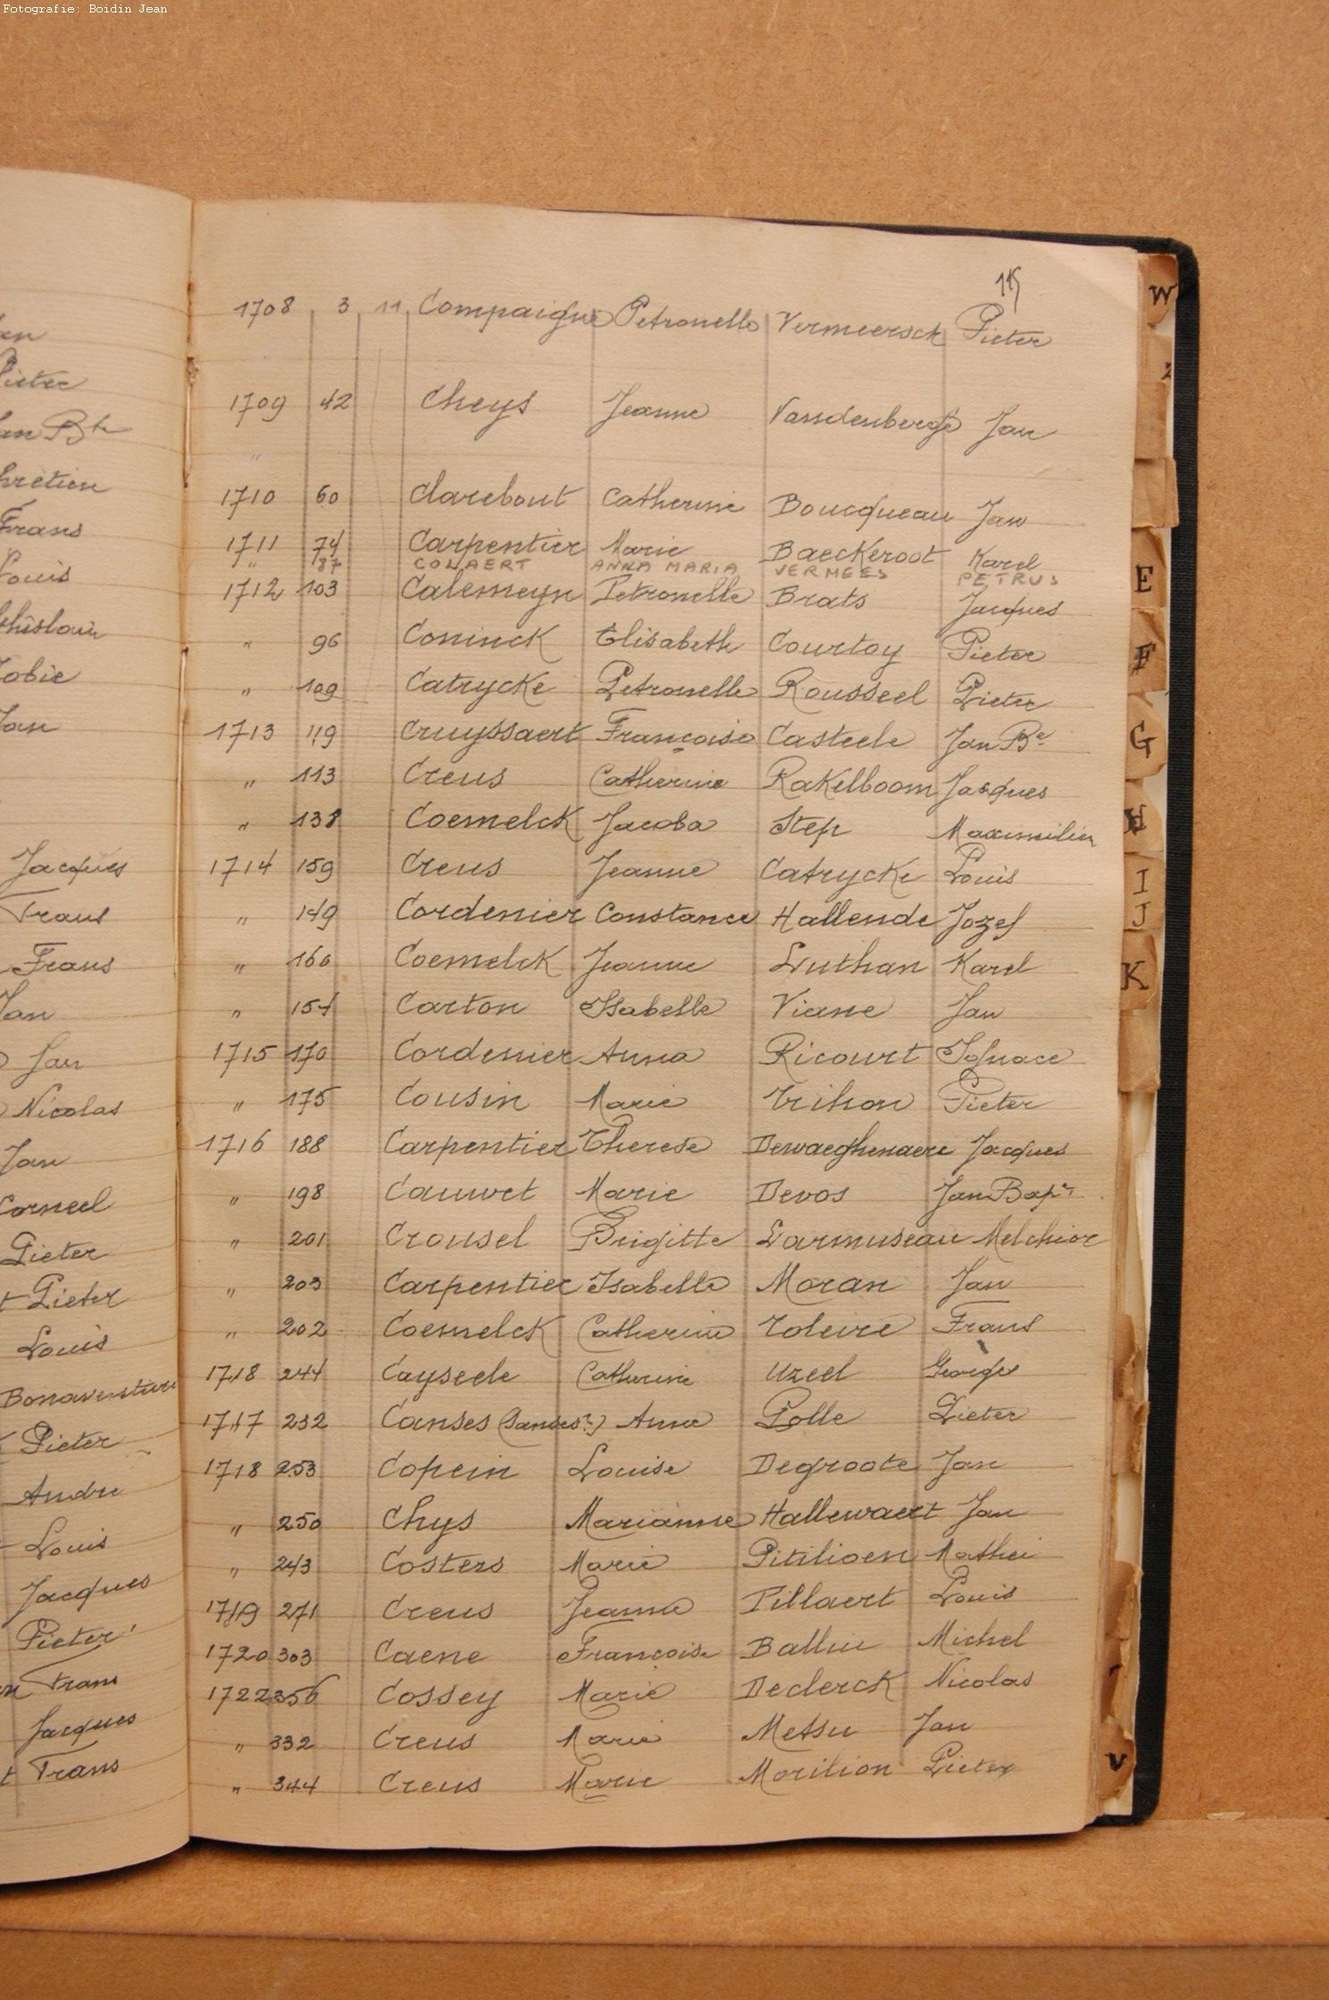 Fotografie: Boidin Jean
115
1708 3 11 Compaigne Petronelle Vermeersch Pieter
1709 42 Cheys Jeanne Vandenberghe Jan
"
1710 60 Clarebout Catherine Boucqueau Jan
1711 74 Carpentier Marie Baeckeroot Karel
" 187 CONAERT ANNA MARIA VERMEES PETRUS
1712 103 Calemeyn Petronelle Brats Jacques
" 96 Coninck Elisabeth Courtoy Pieter
" 109 Catrycke Petronelle Rousseel Pieter
1713 119 Cruyssaert Françoise Casteele Jan Bte
" 113 Creus Catherine Rakelboom Jacques
" 138 Coemelck Jacoba Step Maximilien
1714 159 Creus Jeanne Catrycke Louis
" 149 Cordenier Constance Hallende Jozef
" 160 Coemelck Jeanne Luthan Karel
" 154 Carton Isabelle Viane Jan
1715 170 Cordenier Anna Ricourt Ignace
" 175 Cousin Marie Trihon Pieter
1716 188 Carpentier Therese Dewaeghenaere Jacques
" 198 Cauwet Marie Devos Jan Bapt
" 201 Crousel Brigitte Larmuseau Melchior
" 203 Carpentier Isabelle Moran Jan
" 202 Coemelck Catherine Toleire Frans
1718 244 Cayseele Catherine Uzeel George
1717 232 Canses (Sanses?) Anna Polle Pieter
1718 253 Copein Louise Degroote Jan
" 250 Chys Marianne Hallewaert Jan
" 243 Costers Marie Pitilioen Mathei
1719 271 Creus Jeanne Pillaert Louis
1720 303 Caene Françoise Balliu Michel
1722 356 Cossey Marie Declerck Nicolas
" 332 Creus Marie Metsu Jan
" 344 Creus Marie Morilion Pieter
Pieter
Jan Bte
Chrétien
Frans
Louis
Ghislain
Tobie
Jan
Jacques
Frans
Frans
Jan
Jan
Nicolas
Jan
Corneel
Pieter
Pieter
Louis
Bonaventure
Pieter
Andre
Louis
Jacques
Pieter
Frans
Jacques
Frans
W
E
F
G
H
I
J
K
V